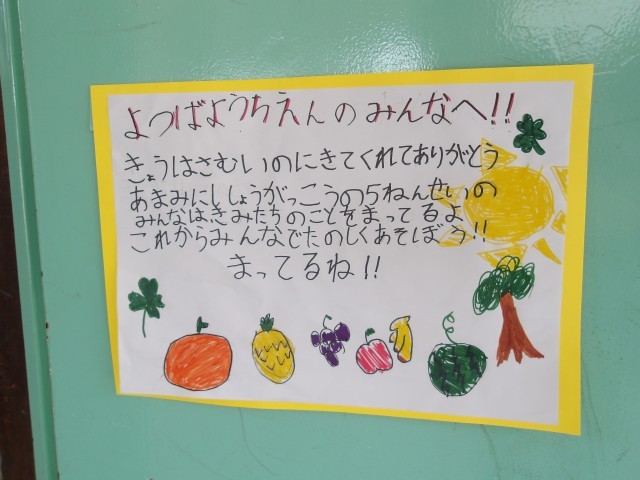 よつばようちえんのみんなへ!!
きょうはさむいのにきてくれてありがとう
あまみにししょうがっこうの5ねんせいの
みんなはきみたちのことをまってるよ
これからみんなでたのしくあそぼう!!
まってるね!!